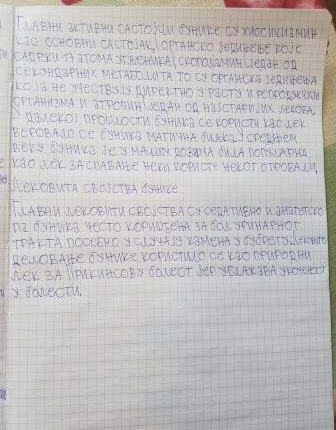 Главни активни састојци бунике су хиосцијамин
као основни састојак, органско једињење које
садржи 17 атома угљеника, скополамин један од
секундарних метаболита то су органска једињења
која не учествују директно у расту и репродукцији
организма и атропин један од најстаријих лекова.
У далекој прошлости буника се користи као лек
веровало се буника магична биљка у средњем
веку буника је у малим дозама била популарна
као лек за спавање неки користе неког отровали.
Лековита својства бунике
Главни лековити својства су седативно и аналгетско
па буника често коришћена за бол уринарног
тракта посебно у случају камена у бубрегу. Лековито
деловање бунике користило се као природни
лек за Паркинсову болест јер ублажава укоченост
у болести.